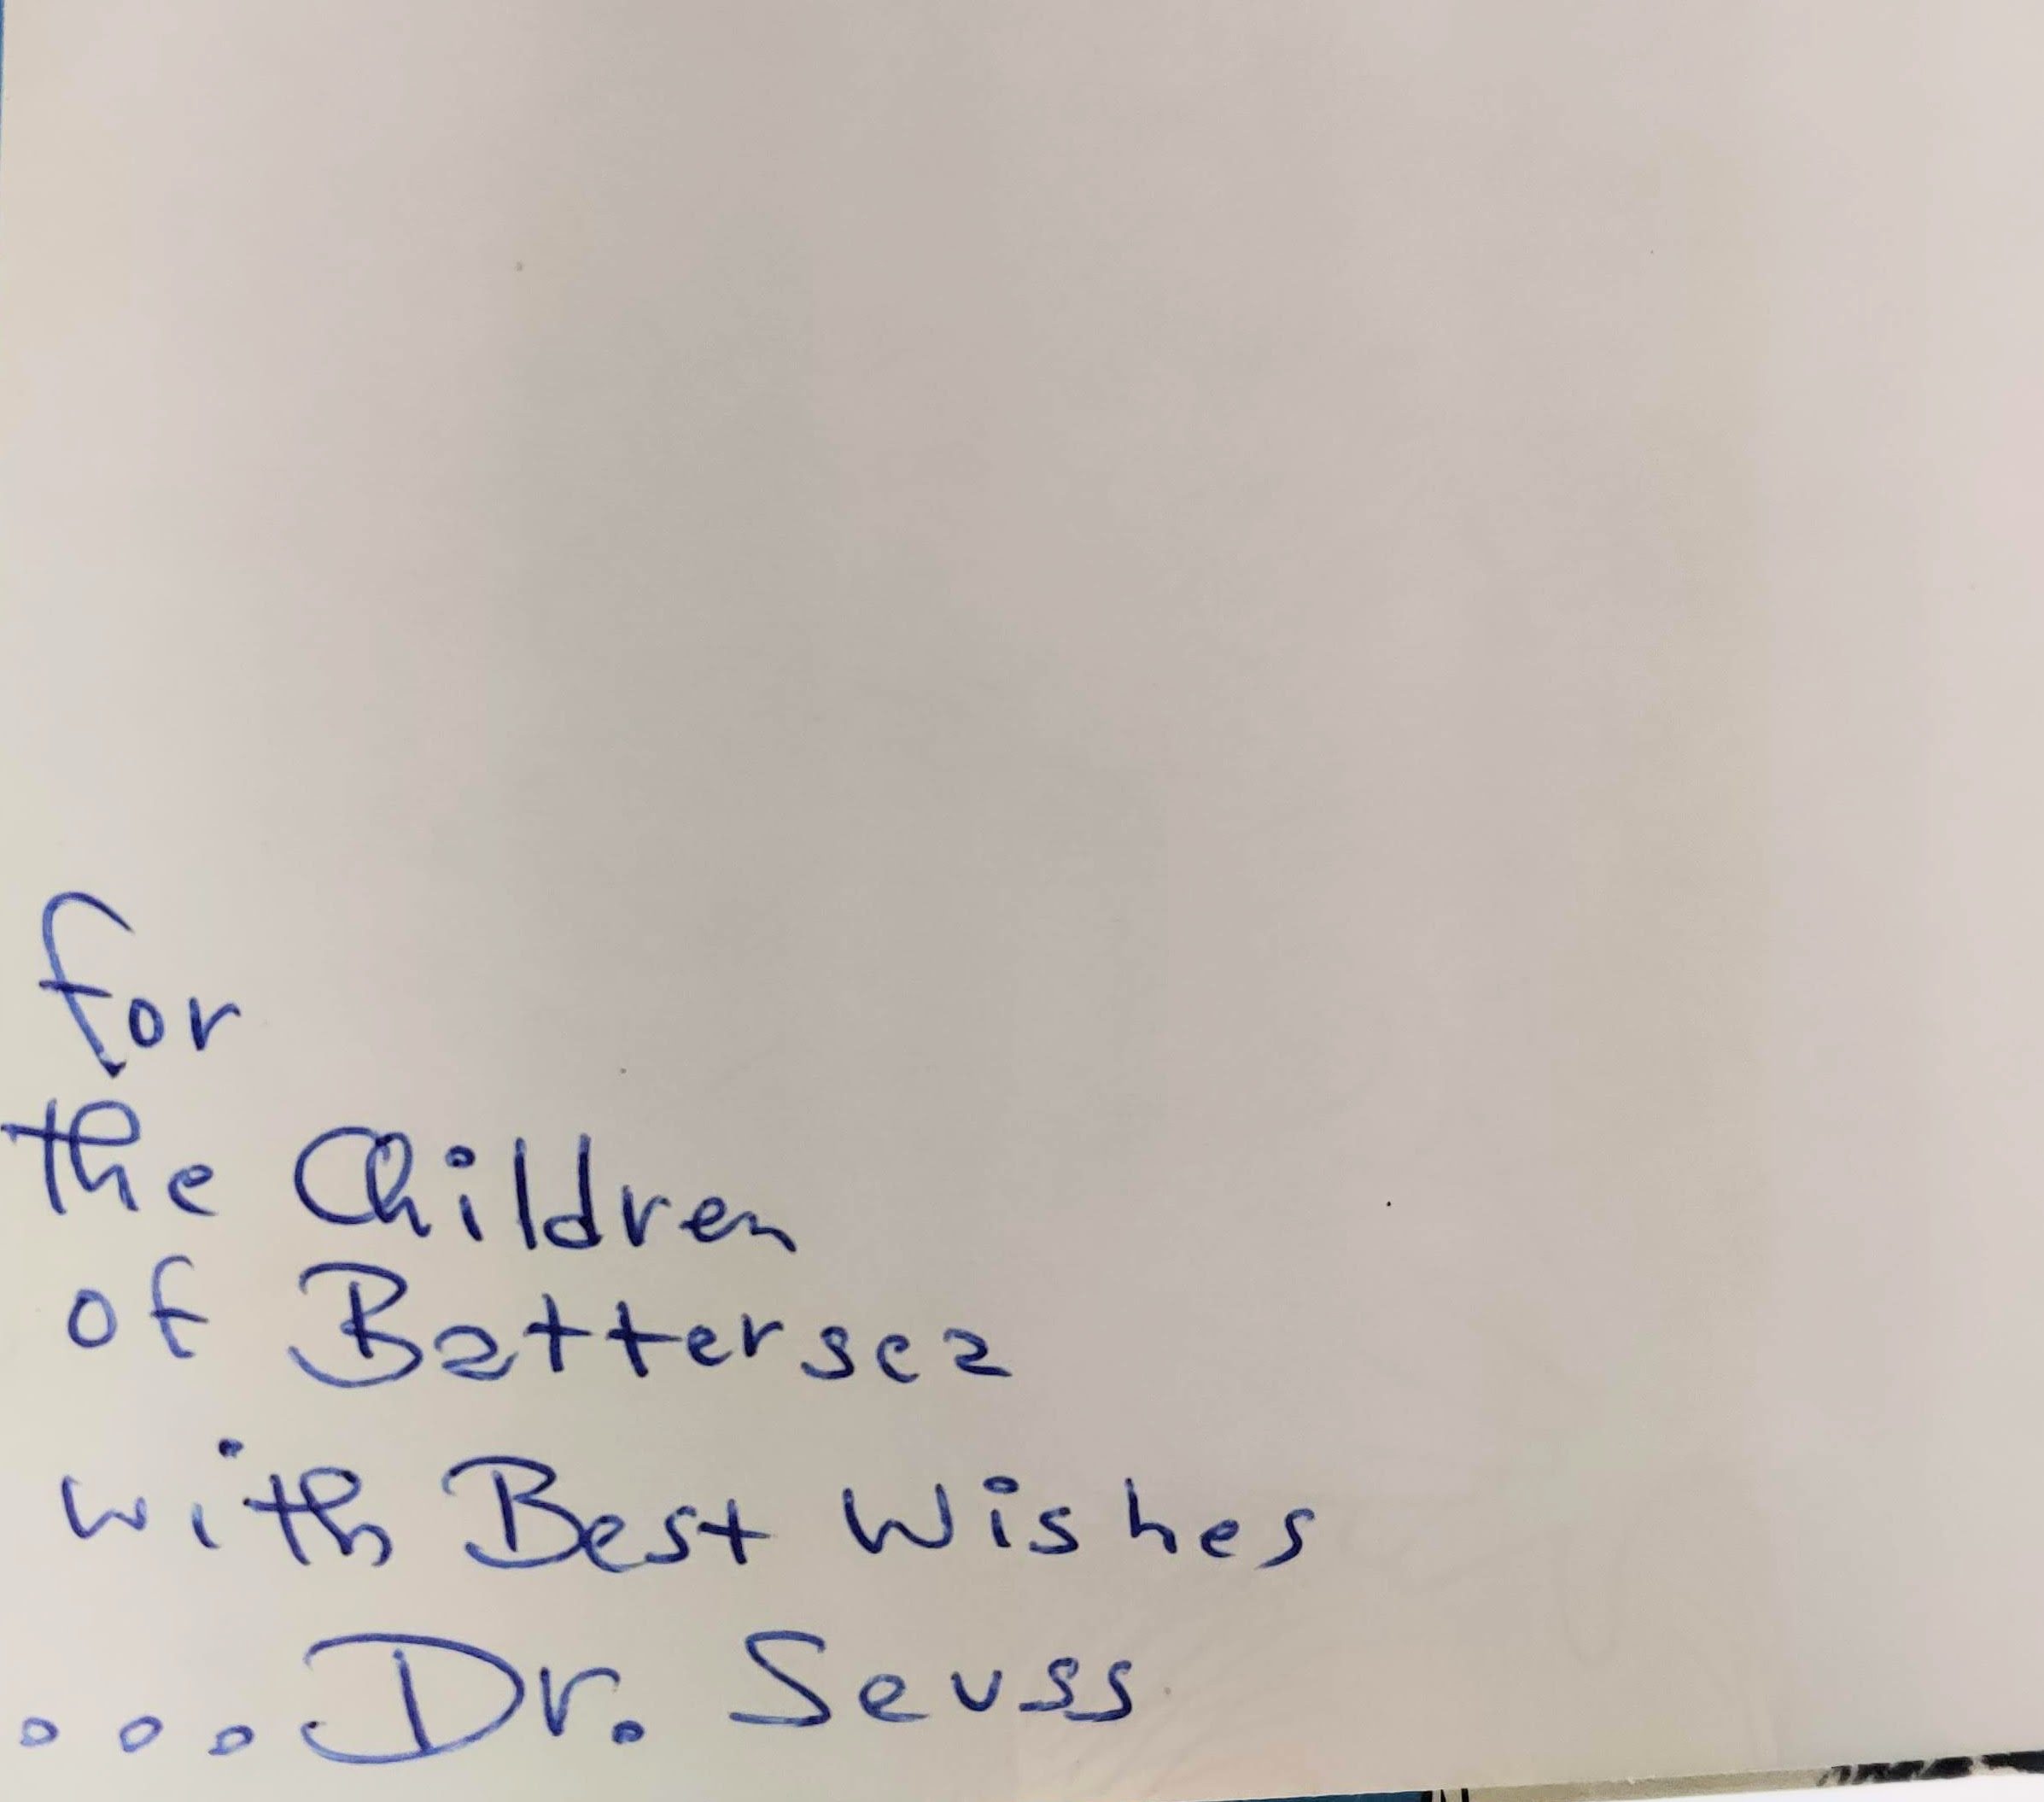 for
the Children
of Battersea
with Best Wishes
...Dr. Seuss